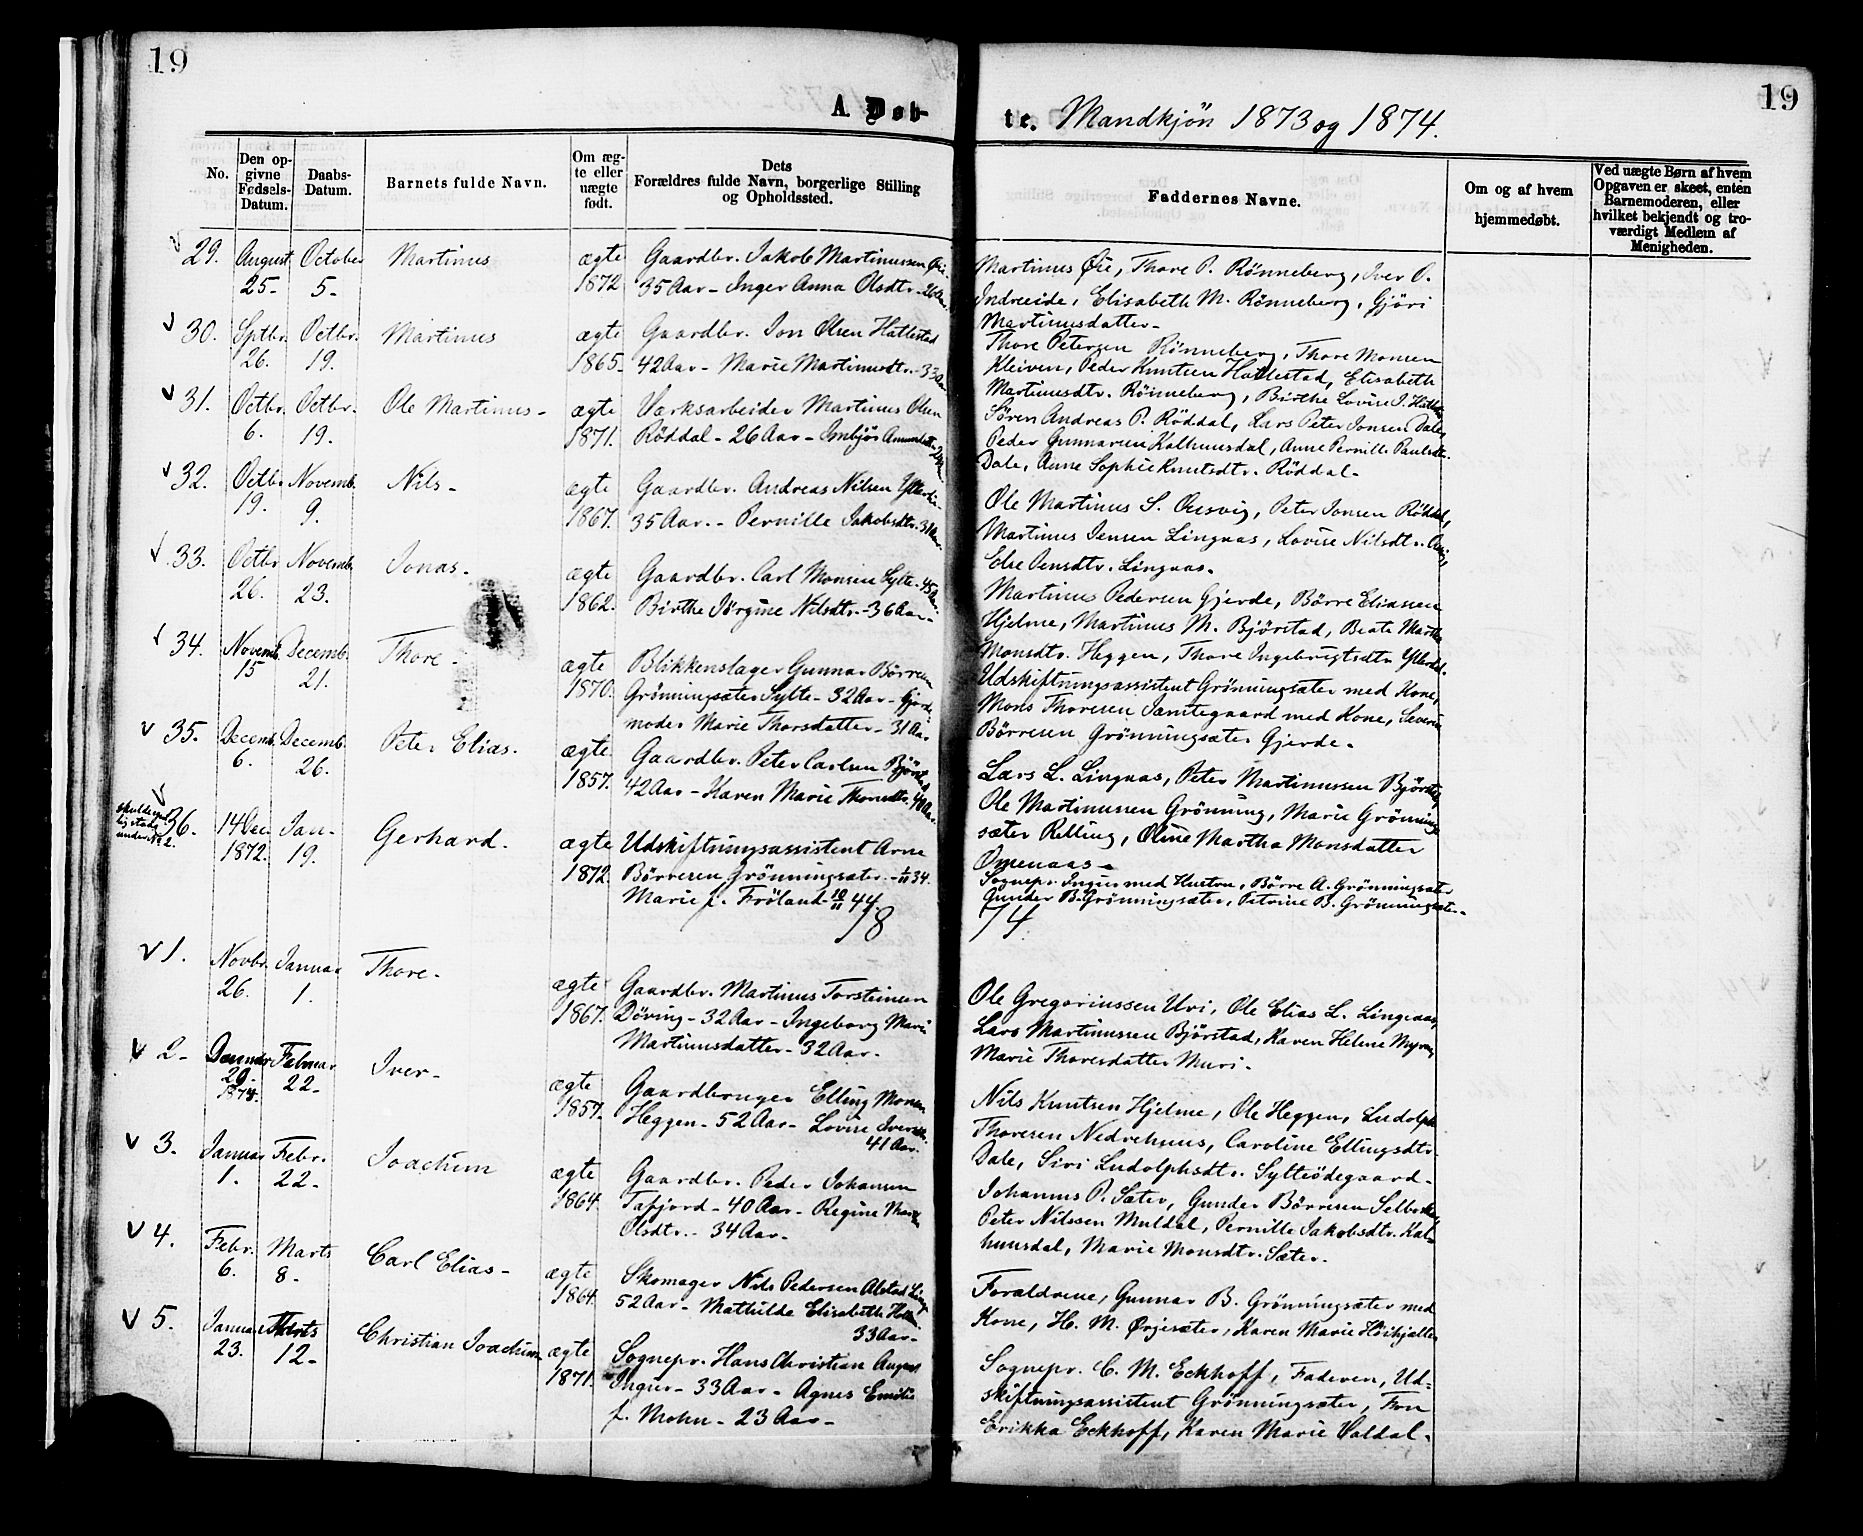 19
19
A. Døb-
te. Mandkjön 1873 og 1874.
No.
Den op-
givne
Fødsels-
Datum.
Daabs-
Datum.
Barnets fulde Navn.
Om æg-
te eller
uægte
født.
Dets
Forældres fulde Navn, borgerlige Stilling
og Opholdssted.
Faddernes Navne.
Om og af hvem
hjemmedøbt.
Ved uægte Børn af hvem
Opgaven er skeet, enten
Barnemoderen, eller
hvilket bekjendt og tro-
værdigt Medlem af
Menigheden.
29. August 25- October 5- Martinus ægte 1872
Gaardbr. Jakob Martinussen Øie
35 Aar- Inger Anna Olsdtr.
Martinus Øie, Thore P. Rönneberg, Iver P.
Indreeide, Elisabeth M. Rönneberg, Gjöri
Martinusdatter-
30. Sptbr. 26. Octbr. 19. Martinus ægte 1865-
Gaardbr. Jon Olsen Hattestad
42 Aar- Marie Martinusdtr.- 33 Aar
Thore Petersen Rönneberg, Thore Monsen
Kleiven, Peder Knutsen Hattestad, Elisabeth
Martinusdtr. Rönneberg, Birthe Lovise J.
31. Octbr. 6. Octbr. 19. Ole Martinus- ægte 1871.
Værksarbeider Martinus Olsen
Röddal- 26 Aar- Imbjör
Sören Andreas P. Röddal, Lars Peter Jonsen Dale,
Peder Gunnarsen Kalhuusdal, Anne Pernille Paulsdtr.
Dale, Anne Sophie Knutsdtr. Röddal-
32. Octbr 19. Novemb. 9. Nils- ægte 1867.
Gaardbr. Andreas Nilsen
35 Aar.- Pernille Jakobsdtr.- 31 Aar.
Ole Martinus S. Ousvig, Peter Jonsen Röddal,
Martinus Jensen Lingaas, Lovise Nilsdtr.
Else Jensdtr. Lingaas.
33. Octbr 26. Novemb. 23. Jonas. ægte 1862.
Gaardbr. Carl Monsen Sylte- 45 Aar.
Birthe Jörgine Nilsdtr.- 36 Aar-
Martinus Pedersen Gjerde, Börre Eliassen
Hjelme, Martinus M. Björstad, Beate Martha
Monsdtr. Heggen, Thore Ingebrigtsdtr.
34. Novemb. 15 Decemb. 21. Thore- ægte 1870.
Blikkenslager Gunnar Börresen
Grönningsæter Sylte- 32 Aar-
moder Marie Thorsdatter- 31 Aar
Udskiftningsassistent Grönningsæter med Kone,
Mons Thoresen Jamtegaard med Kone, Severin
Börresen Grönningsæter Gjerde.
35. Decemb. 6. Decemb. 26. Peter Elias. ægte 1857.
Gaardbr. Peter Carlsen Björstad
42 Aar- Karen Marie Thorsdtr. 40 Aar.
Lars L. Lingaas, Peter Martinussen Björstad,
Ole Martinussen Grönning, Marie Grönning-
sæter Relling, Oline Martha Monsdatter
Omenaas-
36. 14 Dec. 1872. Jan- 19. Gerhard. ægte 1872.
Udskiftningsassistent Arne
Börresen Grönningsæter.
Marie f. Fröland 10/11 44.
Sognepr. Ingier med Hustru, Börre A. Grönningsæter
Gunder B. Grönningsæter, Petrine B. Grönningsæter.
18
74.
1. Novbr. 26. Januar 1. Thore- ægte 1867.
Gaardbr. Martinus Torsteinsen
Döving- 32 Aar- Ingeborg Marie
Martinusdatter- 32 Aar.
Ole Gregoriussen Uri, Ole Elias L. Lingaas,
Lars Martinussen Björstad, Karen Helene Myren,
Marie Thoresdatter Muri.
2- Februar 22- Iver- ægte 1857.
Gaardbruger Elling Monsen
Heggen- 52 Aar- Lovise Iversdtr.
41 Aar.
Nils Knutsen Hjelme, Ole Heggen, Ludolph
Thoresen Nedrehuus, Caroline Ellingsdtr.
Dale, Siri Ludolphsdtr. Sylteödegaard-
3. Januar 1. Febr. 22- Joachim ægte 1864.
Gaardbr. Peder Johansen
Tafjord- 40 Aar- Regine Marie
Olsdtr.- 34 Aar-
Johannes P. Sæter, Gunder Börresen
Peter Nilssen Muldal, Pernille Jakobsdtr. Kal-
huusdal, Marie Monsdtr. Sæter.
4. Febr. 6. Marts 8- Carl Elias- ægte 1864.
Skomager Nils Pedersen Alstad
52 Aar- Mathilde Elisabeth
33 Aar-
Forældrene, Gunnar B. Grönningsæter med
Kone, H. M. Örjesæter, Karen Marie Höihjelle
5. Januar 23. Marts 12- Christian Joachim ægte 1871.
Sognepr. Hans Christian August
Ingier- 33 Aar- Agnes Emilie
f. Mohn- 23 Aar-
Sognepr. C. M. Eckhoff, Faderen, Ud-
skiftningsassistent Grönningsæter, Fru
Erikka Eckhoff, Karen Marie Valdal.